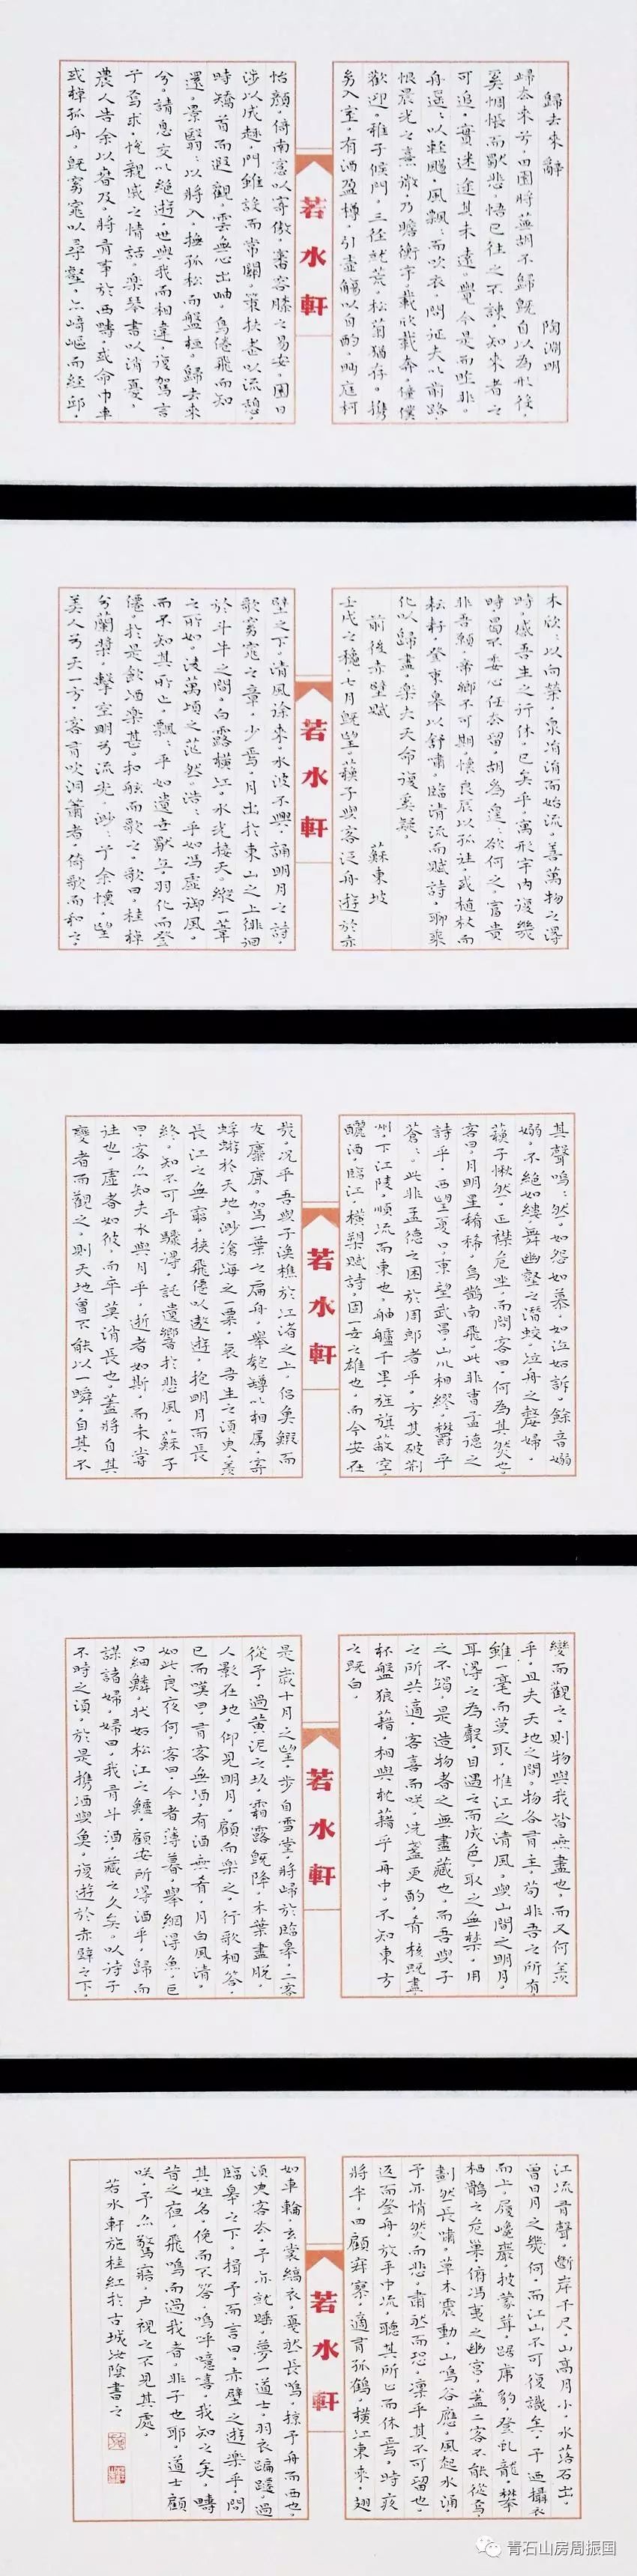 歸去來辭　陶淵明
歸去來兮。田園將蕪胡不歸。既自以為形役。
奚惆悵而獨悲。悟已往之不諫。知來者之
可追。實迷途其未遠。覺今是而昨非。
舟遙:以輕颺。風飄:而吹衣。問征夫以前路。
恨晨光之熹微。乃瞻衡宇。載欣載奔。僮僕
歡迎。稚子候門。三徑就荒。松菊猶存。攜
幼入室。有酒盈樽。引壺觴以自酌。眄庭柯
若水軒
怡顏。倚南窗以寄傲。審容膝之易安。園日
涉以成趣。門雖設而常關。策扶老以流憩。
時矯首而遐觀。雲無心出岫。鳥倦飛而知
還。景翳:以將入。撫孤松而盤桓。歸去來
兮。請息交以絕遊。世與我而相違。復駕言
兮焉求。悅親戚之情話。樂琴書以消憂。
農人告余以春及。將有事於西疇。或命巾車
或棹孤舟。既窈窕以尋壑。亦崎嶇而經邱。
木欣:以向榮。泉涓涓而始流。善萬物之得
時。感吾生之行休。已矣乎。寓形宇內復幾
時。曷不委心任去留。胡為遑:欲何之。富貴
非吾願。帝鄉不可期。懷良辰以孤往。或植杖而
耘耔。登東皋以舒嘯。臨清流而賦詩。聊乘
化以歸盡。樂夫天命復奚疑。
前後赤壁賦　蘇東坡
壬戌之秋。七月既望。蘇子與客泛舟。遊於赤
若水軒
壁之下。清風徐來。水波不興。誦明月之詩。
歌窈窕之章。少焉。月出於東山之上。徘徊
於斗牛之間。白露橫江。水光接天。縱一葦
之所如。凌萬頃之茫然。浩:乎如馮虛御風。
而不知其所止。飄:乎如遺世獨立。羽化而登
僊。於是飲酒樂甚。扣舷而歌之。歌曰。桂棹
兮蘭槳。擊空明兮流光。渺:兮余懷。望
美人兮天一方。客有吹洞簫者。倚歌而和之。
其聲嗚:然。如怨如慕。如泣如訴。餘音嫋
嫋。不絕如縷。舞幽壑之潛蛟。泣舟之嫠婦。
蘇子愀然。正襟危坐。而問客曰。何為其然也。
客曰。月明星稀。烏鵲南飛。此非曹孟德之
詩乎。西望夏口。東望武昌。山川相繆。鬱乎
蒼:。此非孟德之困於周郎者乎。方其破荊
州。下江陵。順流而東也。舳艫千里。旌旗蔽空。
釃酒。臨江。橫槊賦詩。固一世之雄也。而今安在
若水軒
哉。況乎吾與子漁樵於江渚之上。侶魚鰕而
友麋鹿。駕一葉之扁舟。舉匏罇以相屬。寄
蜉蝣於天地。渺滄海之一粟。哀吾生之須臾。羨
長江之無窮。挾飛僊以遨遊。抱明月而長
終。知不可乎驟得。託遺響於悲風。蘇子
曰。客亦知夫水與月乎。逝者如斯。而未嘗
往也。盈虛者如彼。而卒莫消長也。蓋將自其
變者而觀之。則天地曾不能以一瞬。自其不
變而觀之。則物與我皆無盡也。而又何羨
乎。且夫天地之間。物各有主。苟非吾之所有。
雖一毫而莫取。惟江之清風。與山間之明月。
耳得之為聲。目遇之而成色。取之無禁。用
之不竭。是造物者之無盡藏也。而吾與子
之所共適。客喜而笑。洗盞更酌。肴核既盡。
杯盤狼藉。相與枕藉乎舟中。不知東方
之既白。
若水軒
是歲十月之望。步自雪堂。將歸於臨皋。二客
從予。過黃泥之坂。霜露既降。木葉盡脫。
人影在地。仰見明月。顧而樂之。行歌相答。
已而嘆曰。有客無酒。有酒無肴。月白風清。
如此良夜何。客曰。今者薄暮。舉網得魚。巨
口細鱗。狀如松江之鱸。顧安所得酒乎。歸而
謀諸婦。婦曰。我有斗酒。藏之久矣。以待子
不時之須。於是攜酒與魚。復遊於赤壁之下。
江流有聲。斷岸千尺。山高月小。水落石出。
曾日月之幾何。而江山不可復識矣。予迺攝衣
而上。履巉巖。披蒙茸。踞虎豹。登虬龍。攀
栖鶻之危巢。俯馮夷之幽宮。蓋二客不能從焉。
劃然長嘯。草木震動。山鳴谷應。風起水涌。
予亦悄然而悲。肅然而恐。凜乎其不可留也。
返而登舟。放乎中流。聽其所止而休焉。時夜
將半。四顧寂寥。適有孤鶴。橫江東來。翅
若水軒
如車輪。玄裳縞衣。戛然長鳴。掠予舟而西也。
須臾客去。予亦就睡。夢一道士。羽衣蹁躚。過
臨皋之下。揖予而言曰。赤壁之遊樂乎。問
其姓名。俛而不答。嗚呼噫嘻。我知之矣。疇
昔之夜。飛鳴而過我者。非子也耶。道士顧
笑。予亦驚寤。戶視之不見其處。
若水軒施桂紅於古城汝陰書之
青石山房周振国